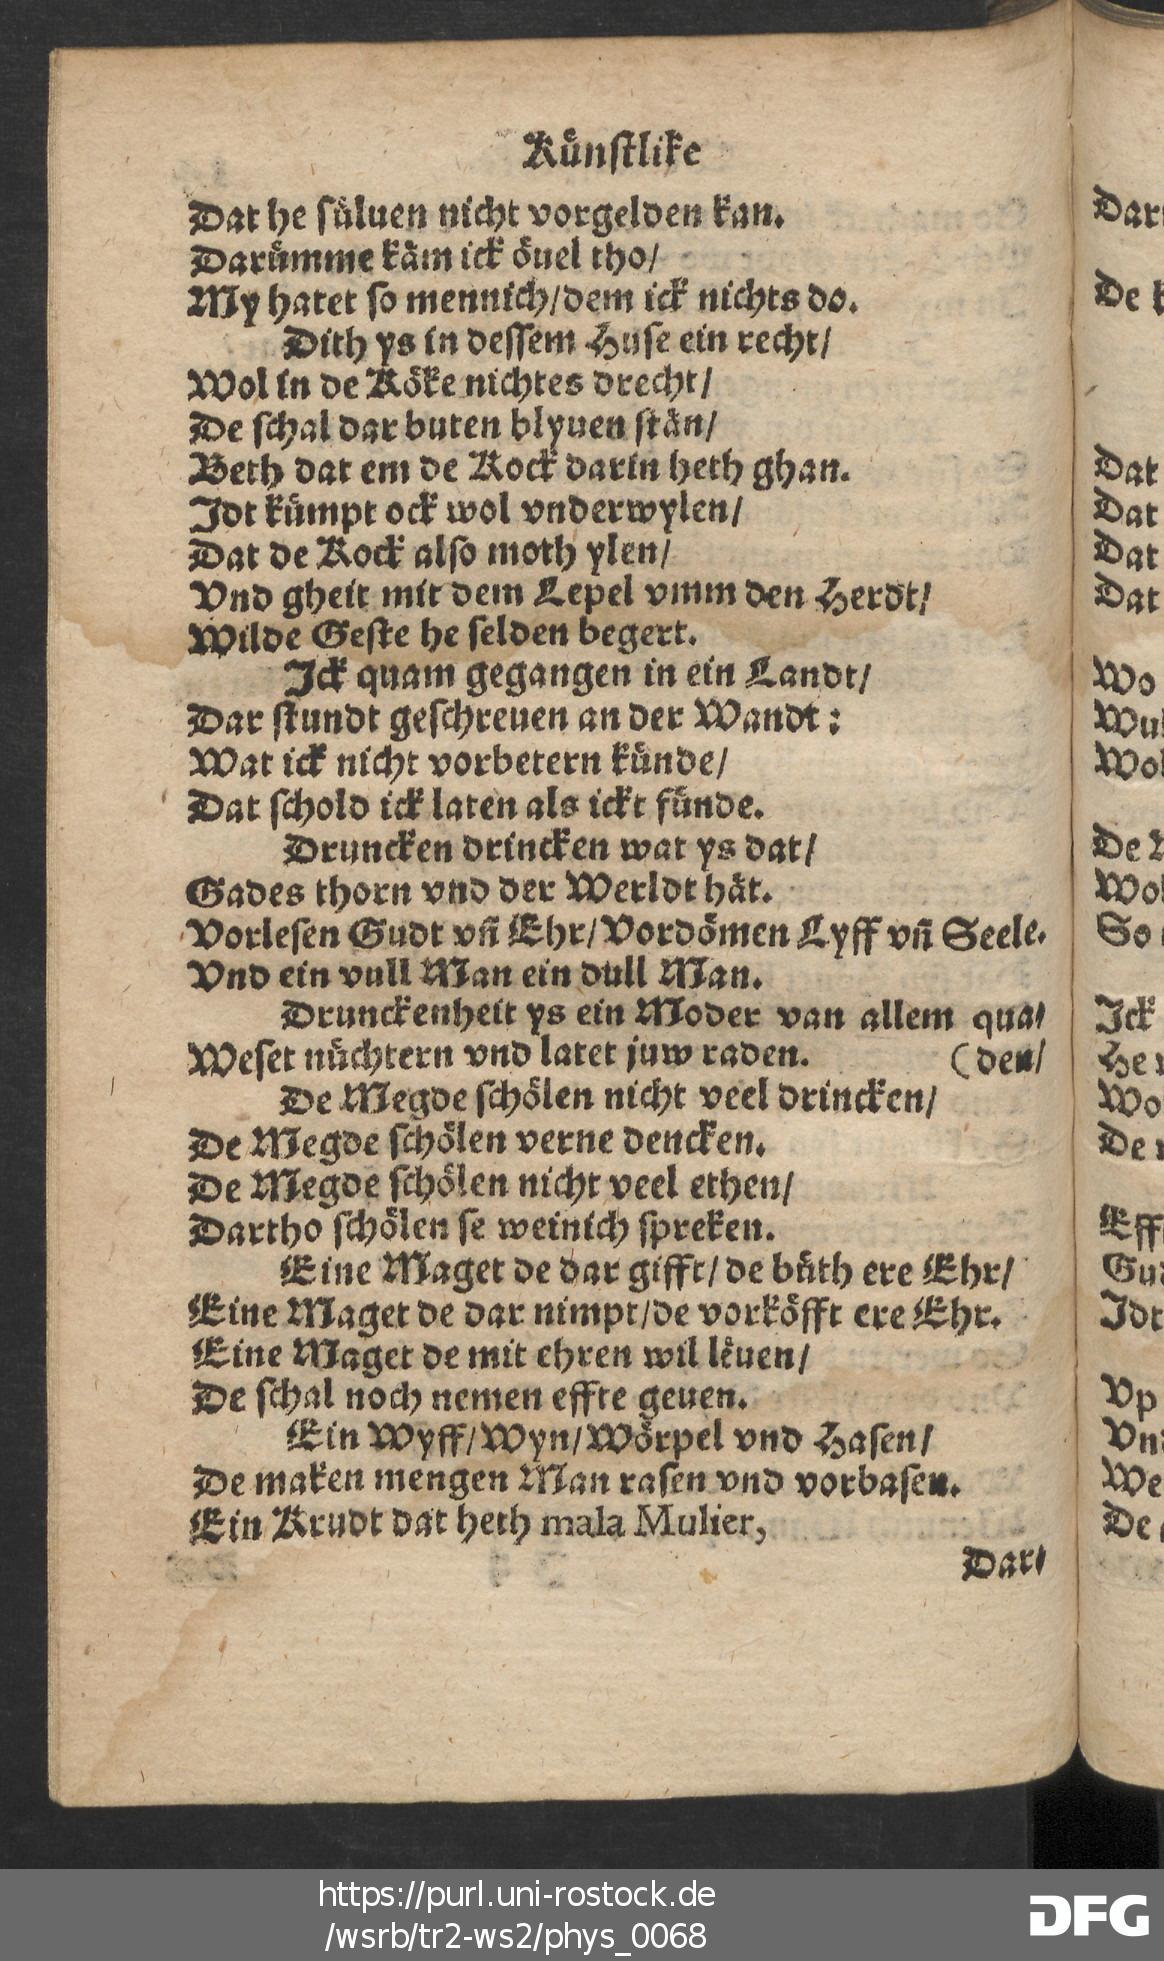 Kuͤnſtlike
Dat he ſuͤluen nicht vorgelden kan.
Daruͤmme kaͤm ick oͤuel tho/
My hatet ſo mennich/dem ick nichts do.
Dith ys in deſſem Huſe ein recht/
Wol in de Koͤke nichtes drecht/
De ſchal dar buten blyuen ſtaͤn/
Beth dat em de Kock darin heth ghan.
Idt kuͤmpt ock wol vnderwylen/
Dat de Kock alſo moth ylen/
Vnd gheit mit dem Lepel vmm den Herdt/
Wilde Geſte he ſelden begert.
Ick quam gegangen in ein Landt/
Dar ſtundt geſchreuen an der Wandt:
Wat ick nicht vorbetern kuͤnde/
Dat ſchold ick laten als ickt fuͤnde.
Druncken drincken wat ys dat/
Gades thorn vnd der Werldt haͤt.
Vorleſen Gudt vn̄ Ehr/Vordoͤmen Lyff vn̄ Seele.
Vnd ein vull Man ein dull Man.
Drunckenheit ys ein Moder van allem qua⸗
Weſet nuͤchtern vnd latet juw raden. (den/
De Megde ſchoͤlen nicht veel drincken/
De Megde ſchoͤlen verne dencken.
De Megde ſchoͤlen nicht veel ethen/
Dartho ſchoͤlen ſe weinich ſpreken.
Eine Maget de dar gifft/de buͤth ere Ehr/
Eine Maget de dar nimpt/de vorkoͤfft ere Ehr.
Eine Maget de mit ehren wil leͤuen/
De ſchal noch nemen effte geuen.
Ein Wyff/Wyn/Woͤrpel vnd Haſen/
De maken mengen Man raſen vnd vorbaſen.
Ein Krudt dat heth mala Mulier,
Dar⸗
De
Dat
Dat
Dat
Dat
Wo
De
So
Ick
He
Wo
De
Idt
Vp
We
De
https://purl.uni-rostock.de
/wsrb/tr2-ws2/phys_0068
DFG